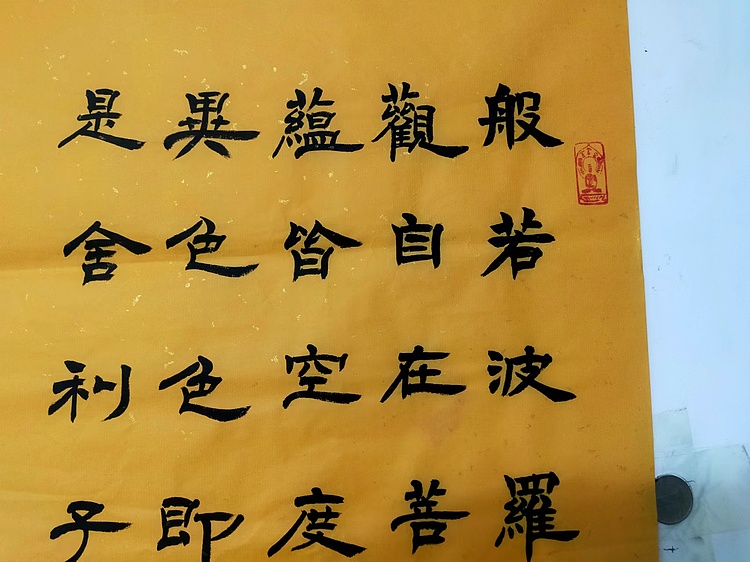 般若波羅
觀自在菩
蘊皆空度
異色色即
是舍利子